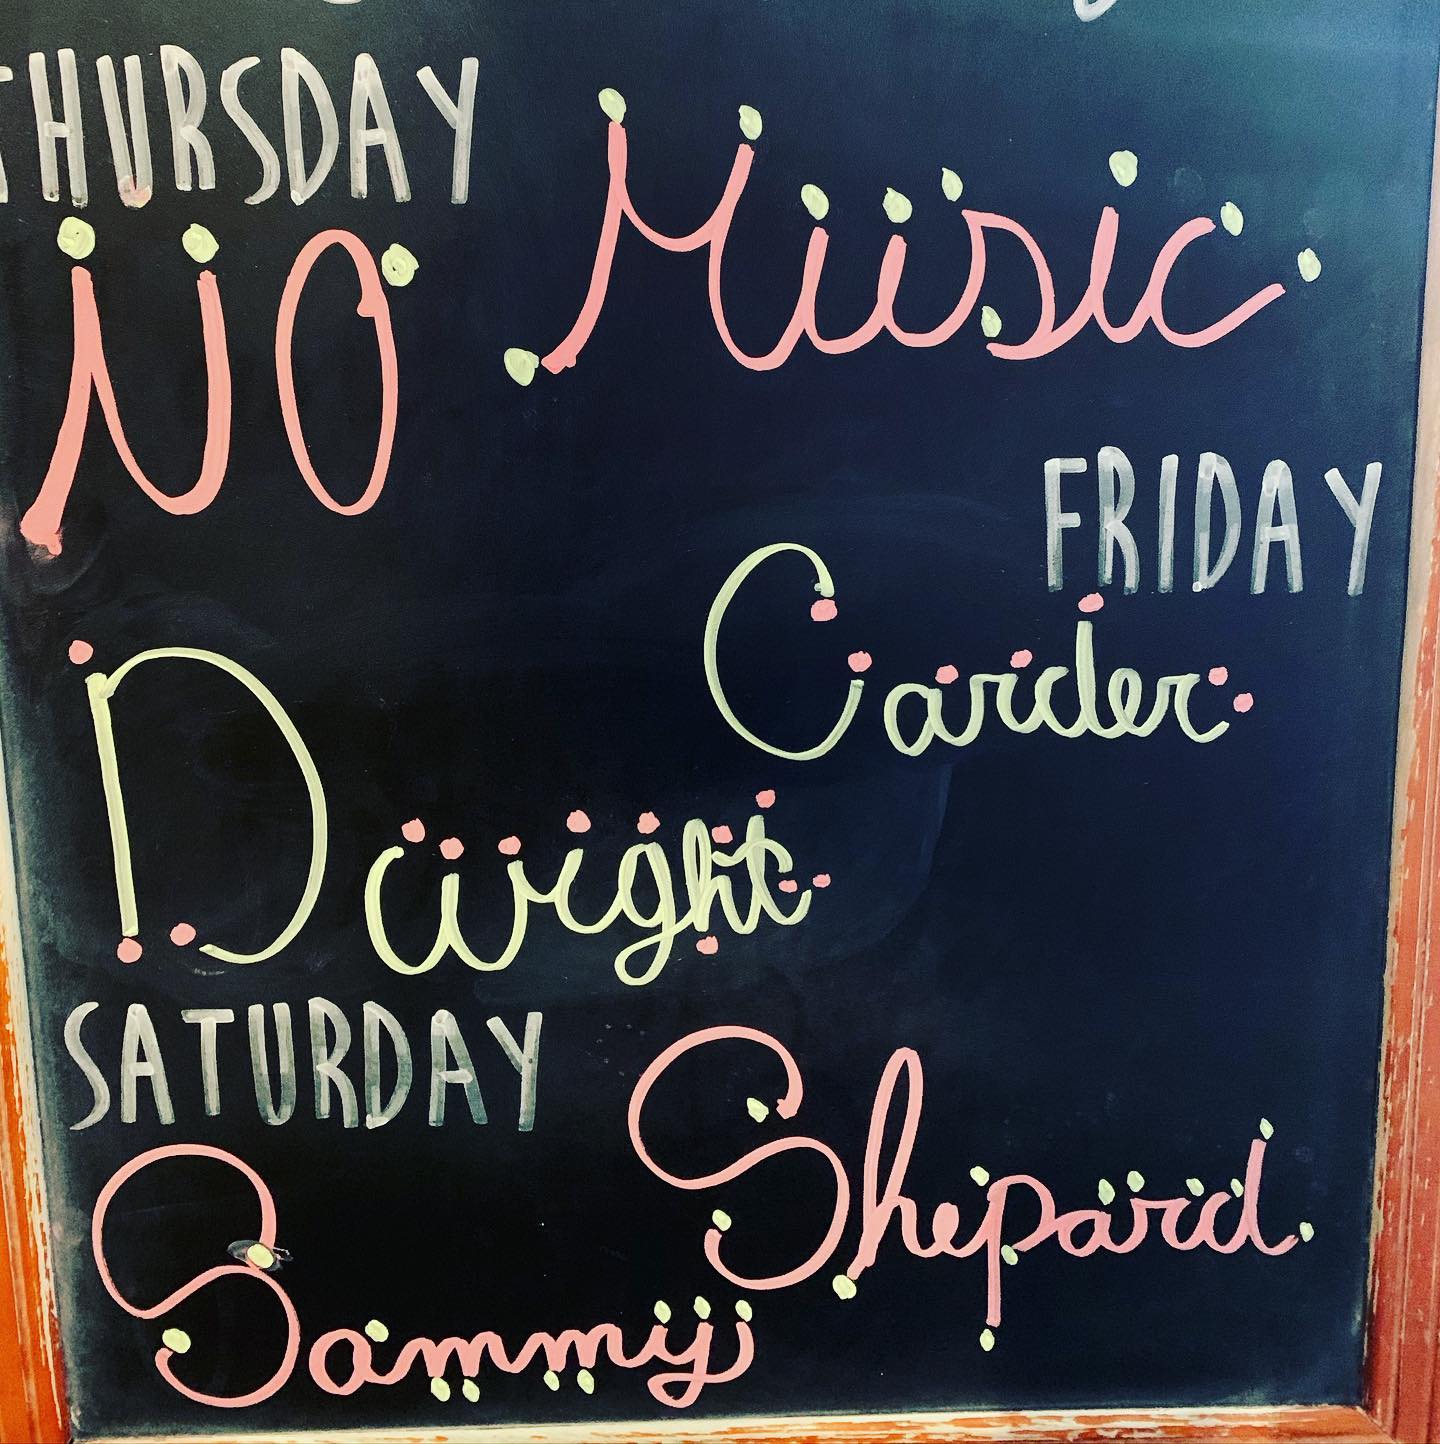 THURSDAY
NO Music
FRIDAY
Dwight Carder
SATURDAY
Sammy Shepard